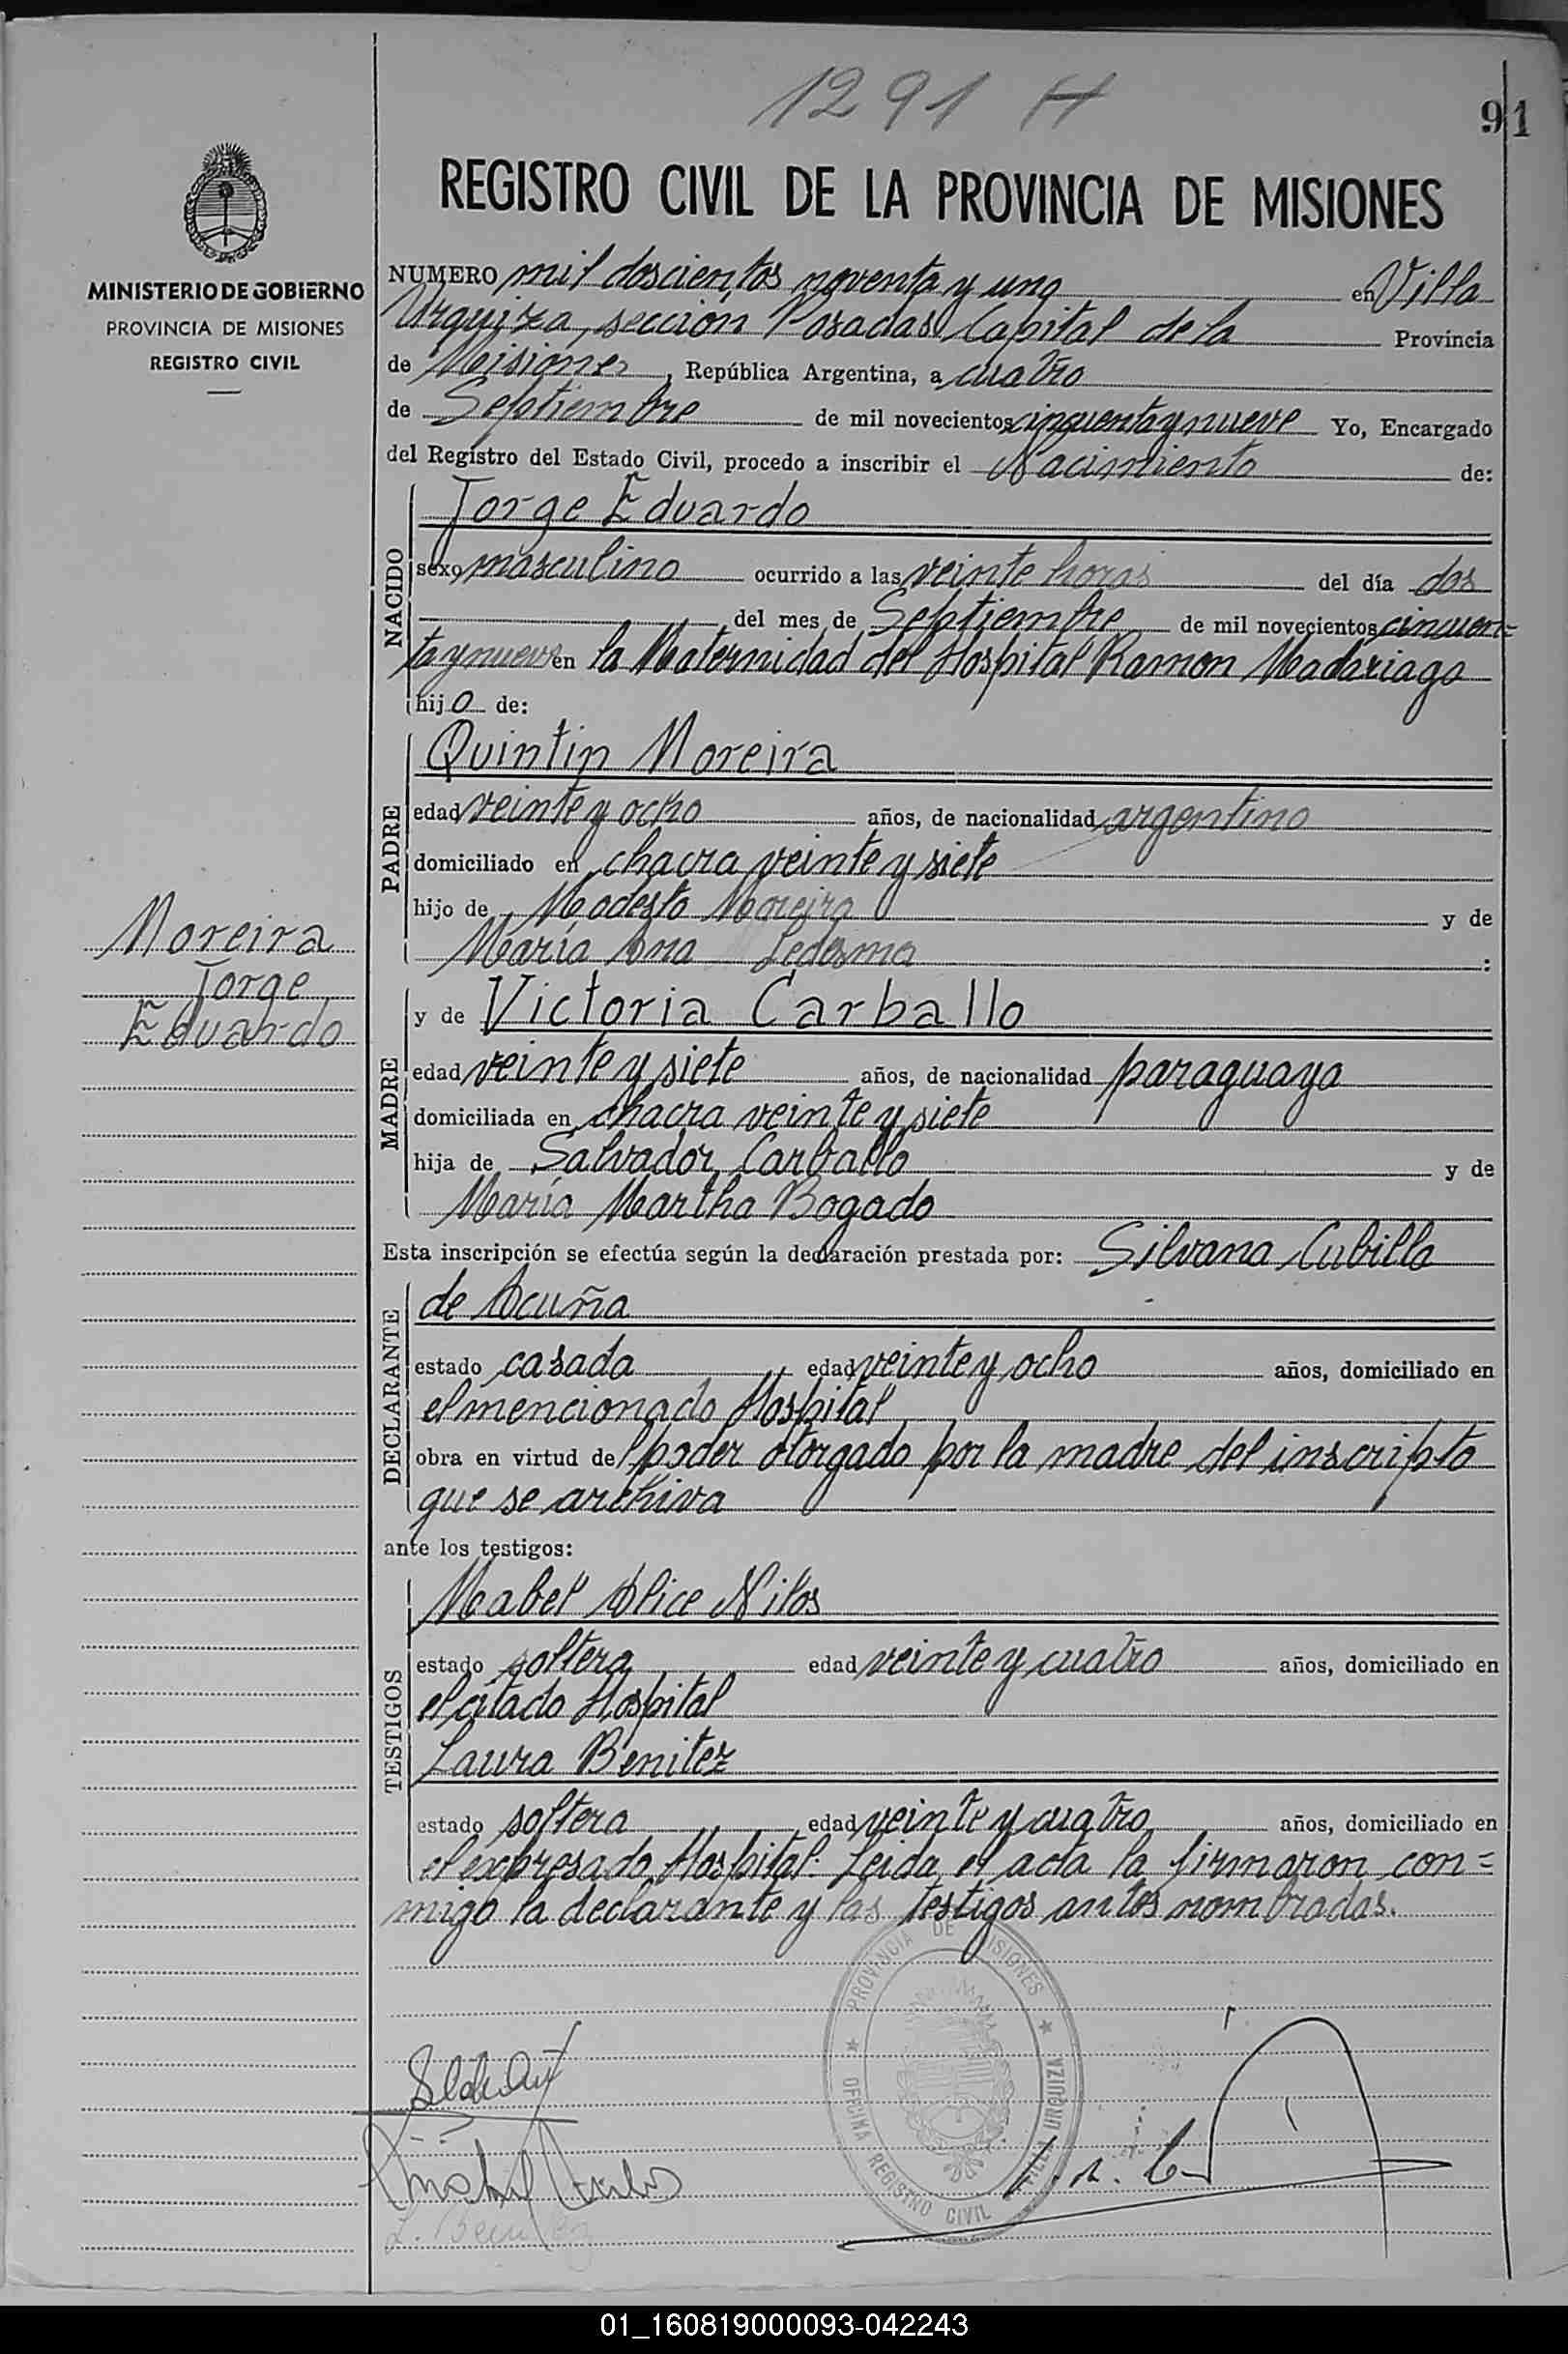 1291 H
91
REGISTRO CIVIL DE LA PROVINCIA DE MISIONES
MINISTERIO DE GOBIERNO
PROVINCIA DE MISIONES
REGISTRO CIVIL
NUMERO mil doscientos noventa y uno en Villa
Urquiza, sección Posadas Capital de la Provincia
de Misiones, República Argentina, a cuatro
de Septiembre de mil novecientos cincuenta y nueve Yo, Encargado
del Registro del Estado Civil, procedo a inscribir el Nacimiento de:
NACIDO
Jorge Eduardo
sexo masculino ocurrido a las veinte horas del día dos
del mes de Septiembre de mil novecientos cincuen=
ta y nueve en la Maternidad del Hospital Ramon Madariaga
hijo de:
PADRE
Quintin Moreira
edad veinte y ocho años, de nacionalidad argentino
domiciliado en chacra veinte y siete
hijo de Modesto Moreira y de
María Ana Ledesma :
Moreira
Jorge
Eduardo
MADRE
y de Victoria Carballo
edad veinte y siete años, de nacionalidad paraguaya
domiciliada en chacra veinte y siete
hija de Salvador Carballo y de
María Martha Bogado
Esta inscripción se efectúa según la declaración prestada por: Silvana Cubilla
DECLARANTE
de Acuña
estado casada edad veinte y ocho años, domiciliado en
el mencionado Hospital
obra en virtud del poder otorgado por la madre del inscripto
que se archiva
ante los testigos:
TESTIGOS
Mabel Alice Nilos
estado soltera edad veinte y cuatro años, domiciliado en
el citado Hospital
Laura Benitez
estado soltera edad veinte y cuatro años, domiciliado en
el expresado Hospital. Leida el acta la firmaron con=
migo la declarante y las testigos antes nombradas.
PROVINCIA DE MISIONES
OFICINA REGISTRO CIVIL VILLA URQUIZA
L. Benitez
01_160819000093-042243